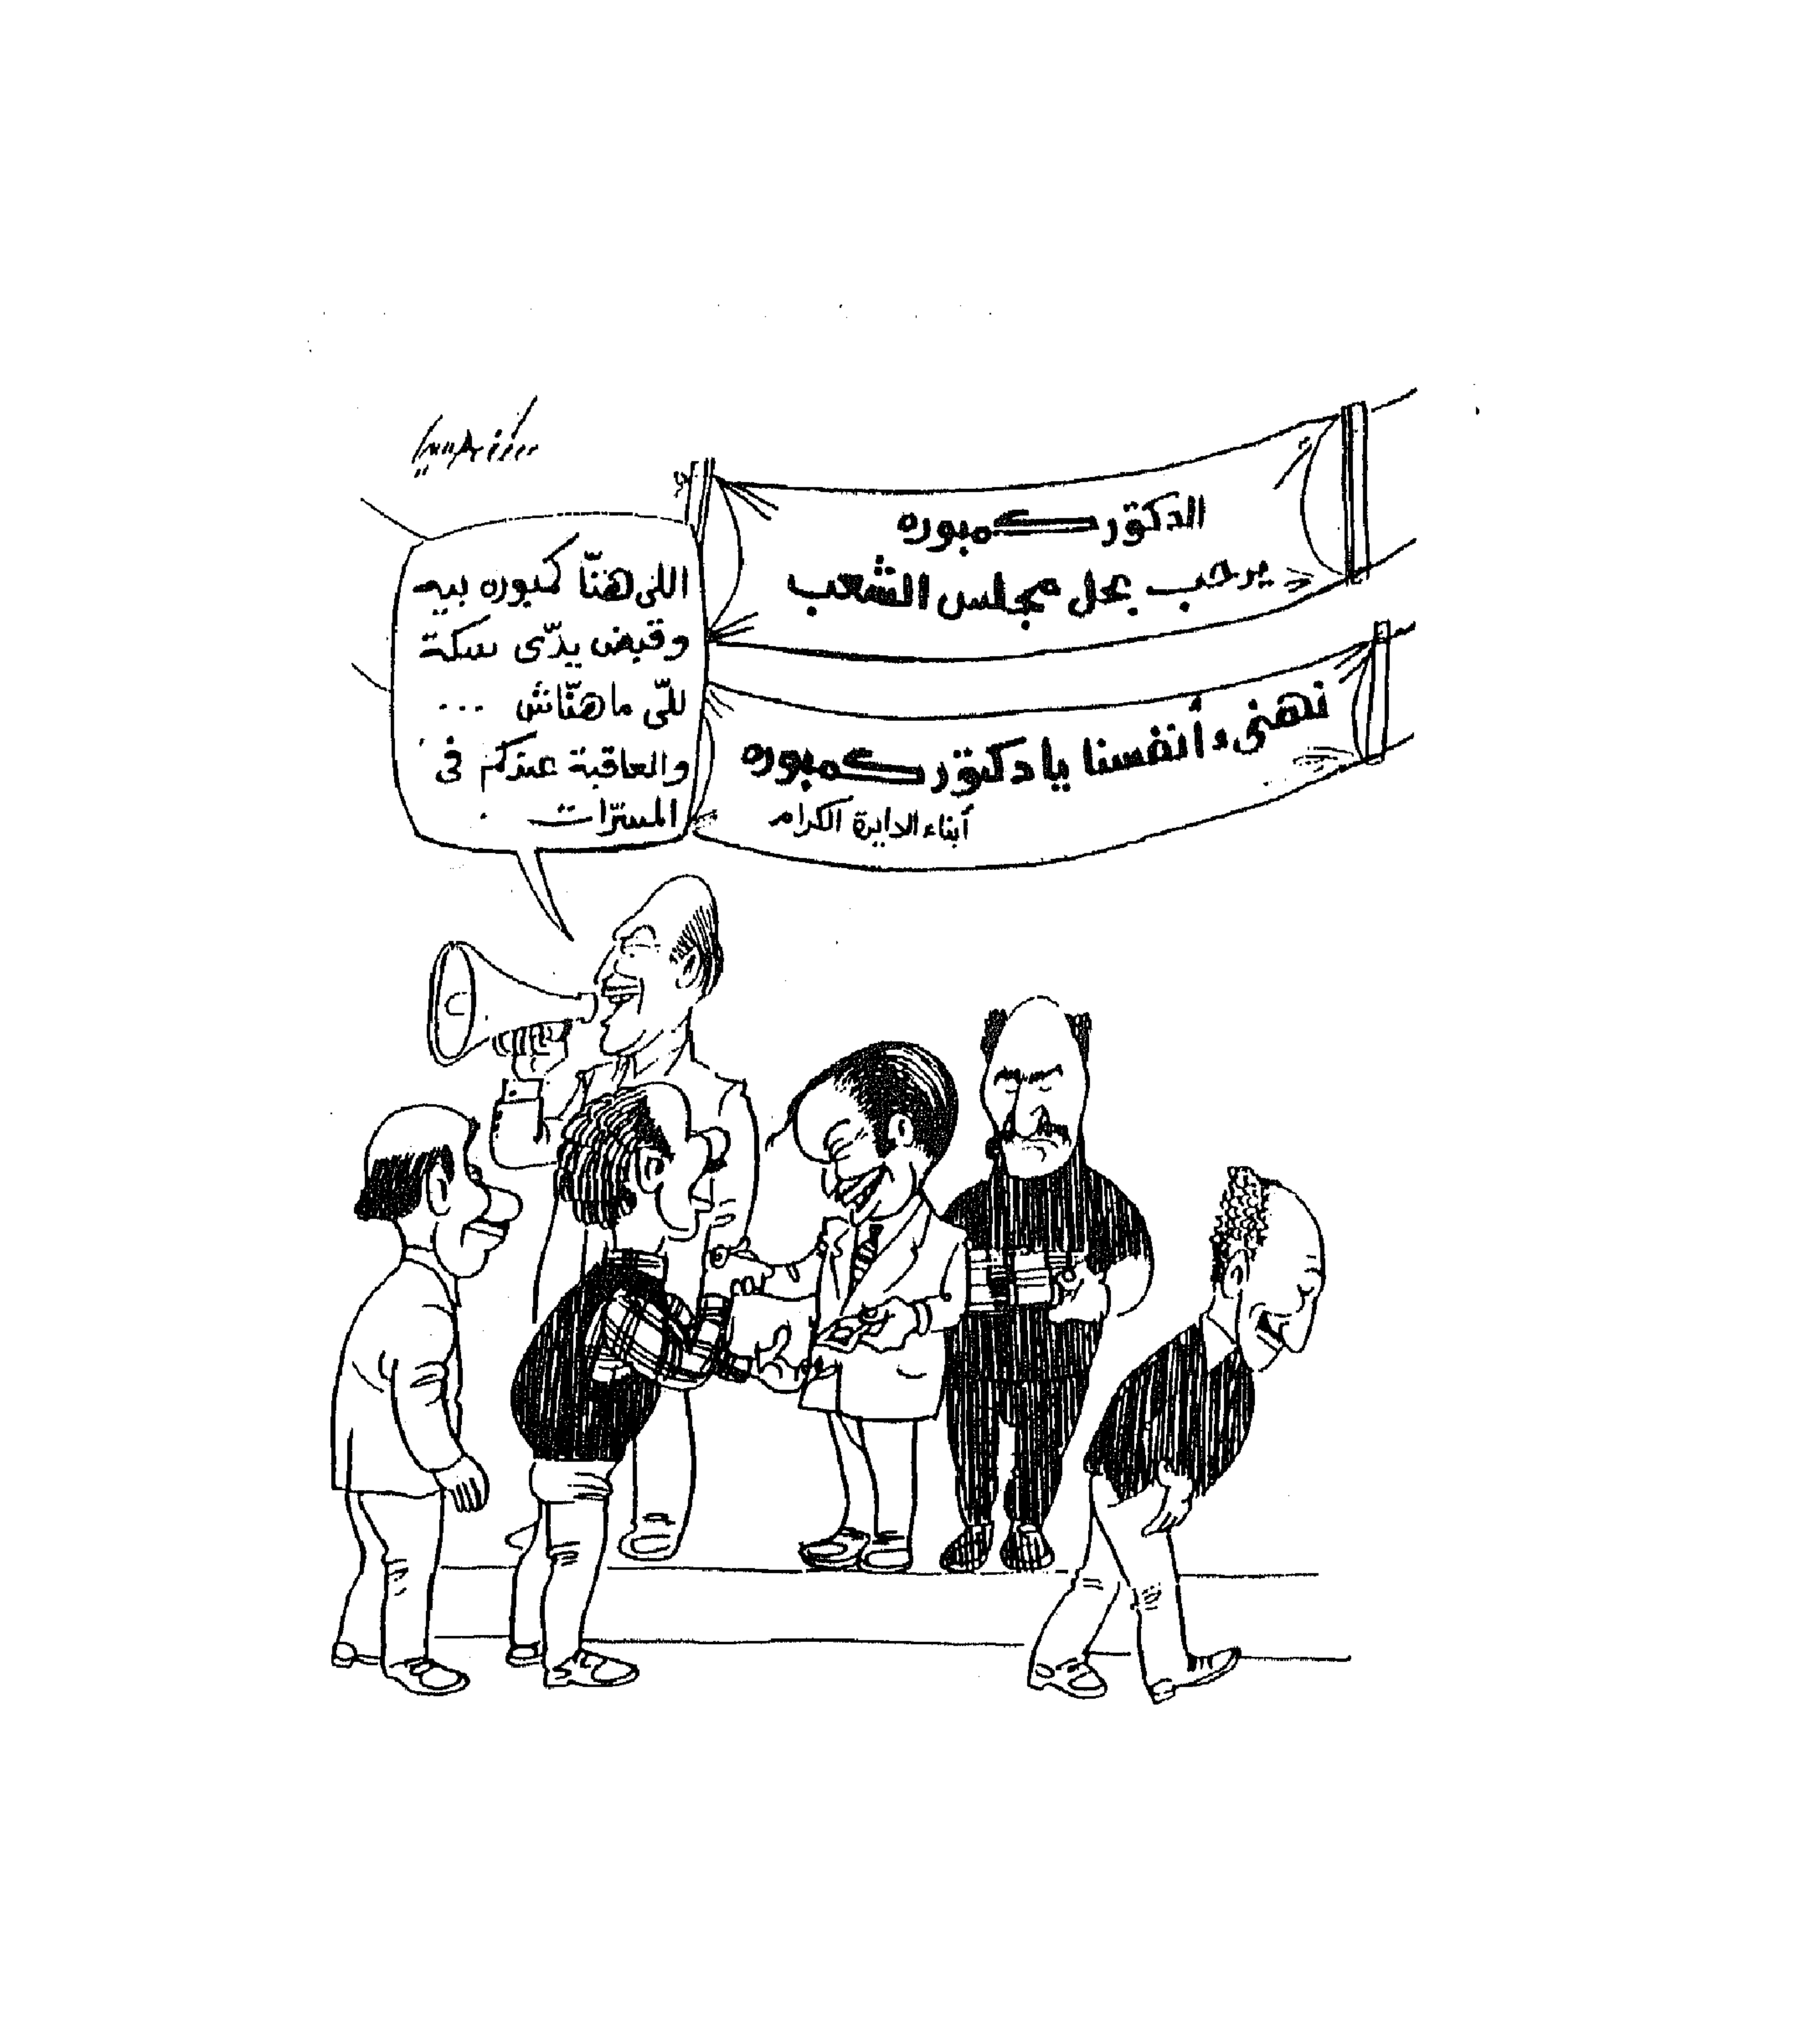 الدكتور كمبوره
يرحب بحل مجلس الشعب
نهنىء أنفسنا يا دكتور كمبوره
أبناء الدايرة الكرام
اللى هنّا كمبوره بيه
وقبض يدّى سكة
للّى ما هنّاش ...
والعاقبة عندكم فى
المسرّات .